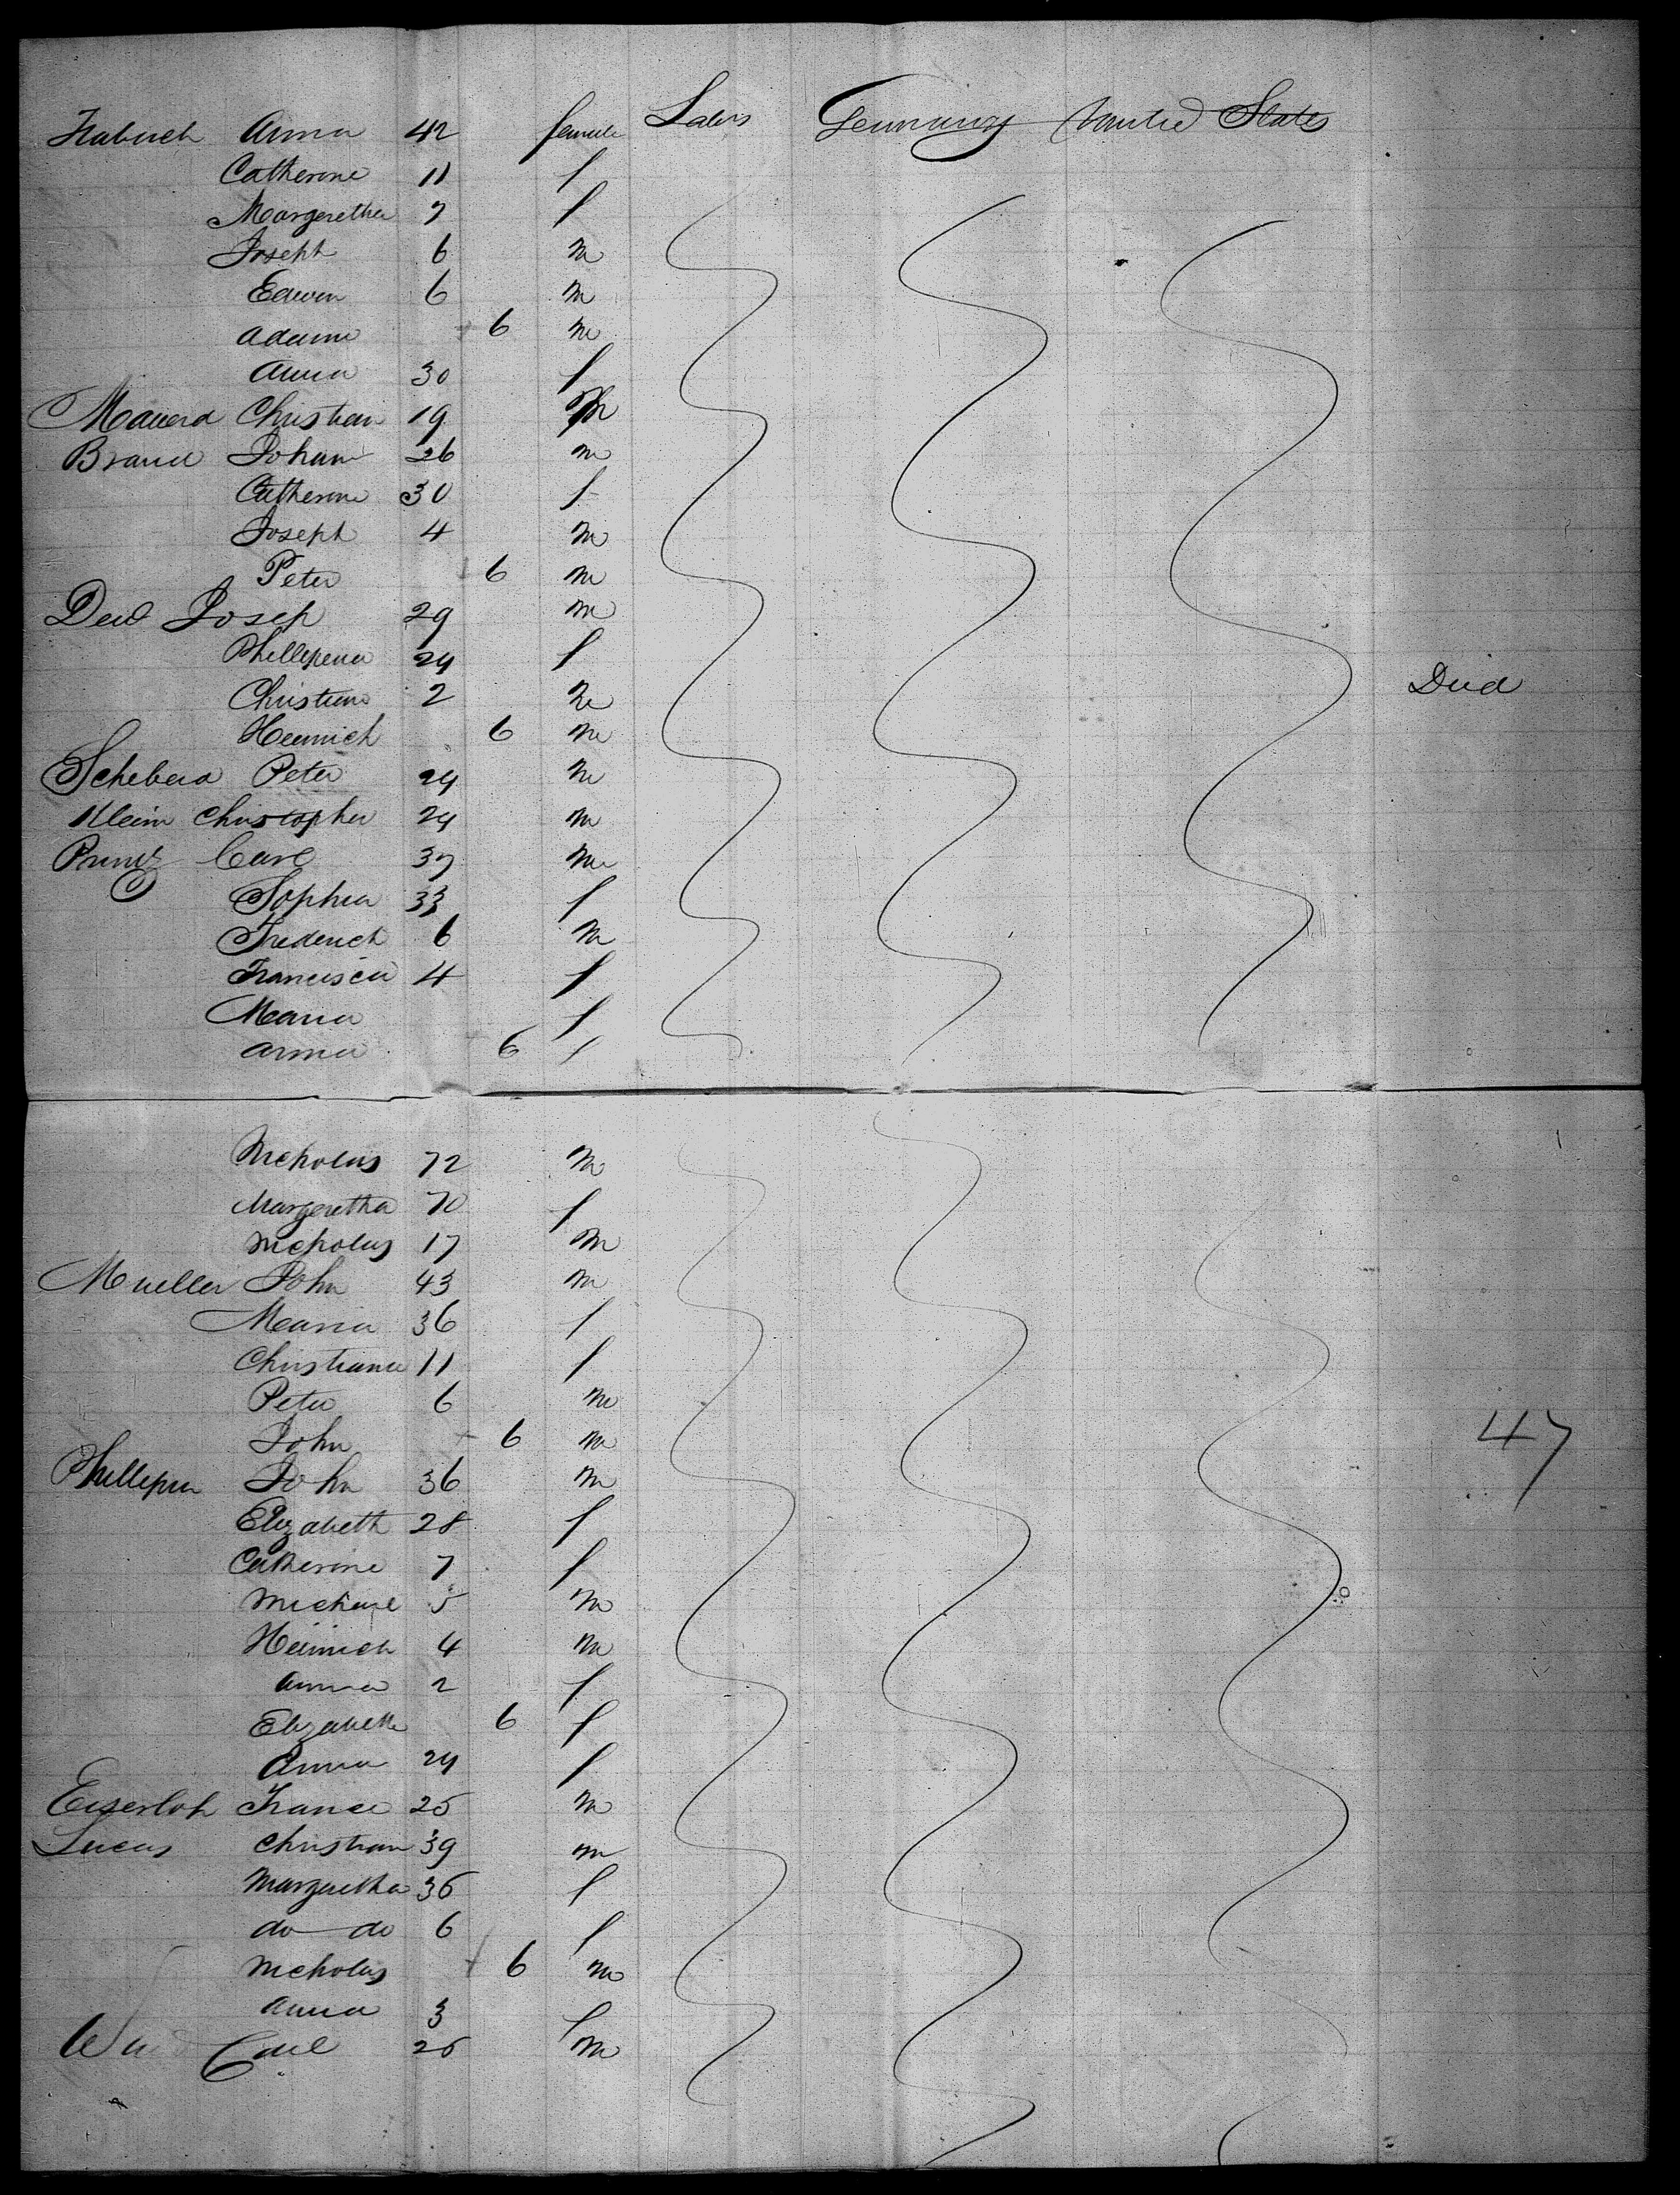 Habuch Anna 42 female Labrs Germany United States
Catherine 11 f
Margeretha 7 f
Joseph 6 m
Edwin 6 m
Adam 6 m
Anna 30 f
Christian 19 m
Brand Johann 26 m
Catherine 30 f
Joseph 4 m
Peter 6 m
Josep 29 m
Phillipena 24 f
Christian 2 m Died
Heinrich 6 m
Peter 24 m
Klein Christopher 24 m
Prinz Carl 37 m
Sophia 33 f
Frederich 6 m
Francisca 4 f
Maria f
Anna 6 f
Nicholas 72 m
Margeretha 70 f
Nicholas 17 m
Mueller John 43 m
Maria 36 f
Christiana 11 f
Peter 6 m
John 6 m
47
John 36 m
Elizabeth 28 f
Catherine 7 f
Michael 5 m
Heinrich 4 m
Anna 2 f
Elizabeth 6 f
Anna 24 f
Eiserloh Franz 25 m
Lucas Christian 39 m
Margaretha 36 f
do do 6 f
Nicholas 6 m
Anna 3 f
Carl 26 m